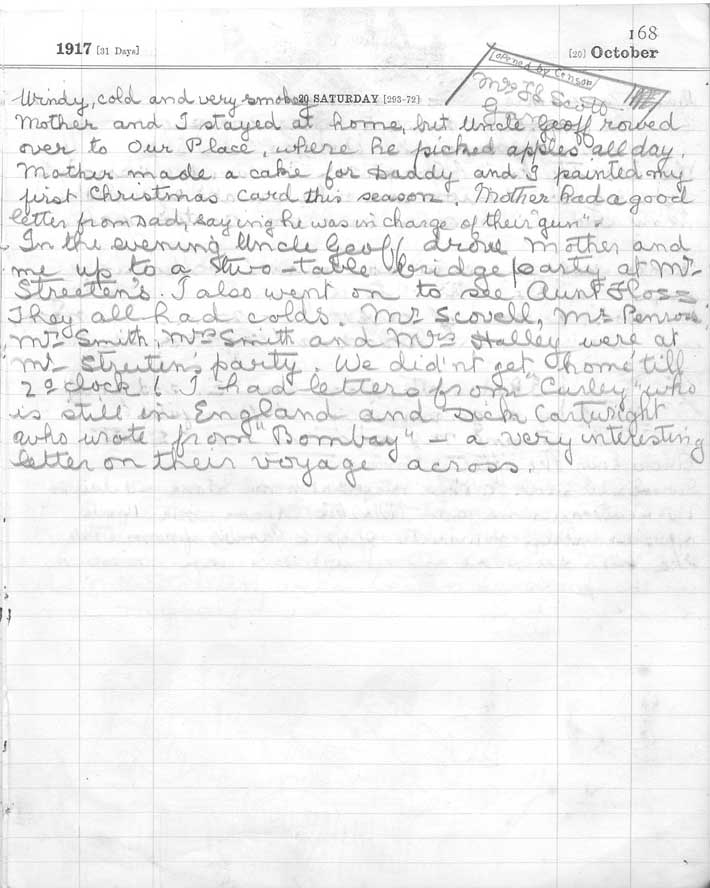 168
1917 [31 Days] [20] October
[opened by Censor]
Mrs
Windy, cold and very smoky 20 SATURDAY [293-72]
Mother and I stayed at home, but Uncle Geoff rowed
over to Our Place, where he picked apples all day.
Mother made a cake for Daddy and I painted my
first Christmas card this season. Mother had a good
letter from Dad, saying he was in charge of their "gun".
In the evening Uncle Geoff drove Mother and
me up to a two-table bridge party at Mrs
Streeten's. I also went on to see Aunt Floss
They all had colds. Mr Scovell, Mr Penrose
Mr Smith, Mrs Smith and Mrs Halley were at
Mrs Streeten's party. We did'nt get home till
2 o'clock! I had letters from "Curley" who
is still in England and Dick Cartwright
who wrote from "Bombay" - a very interesting
letter on their voyage across.